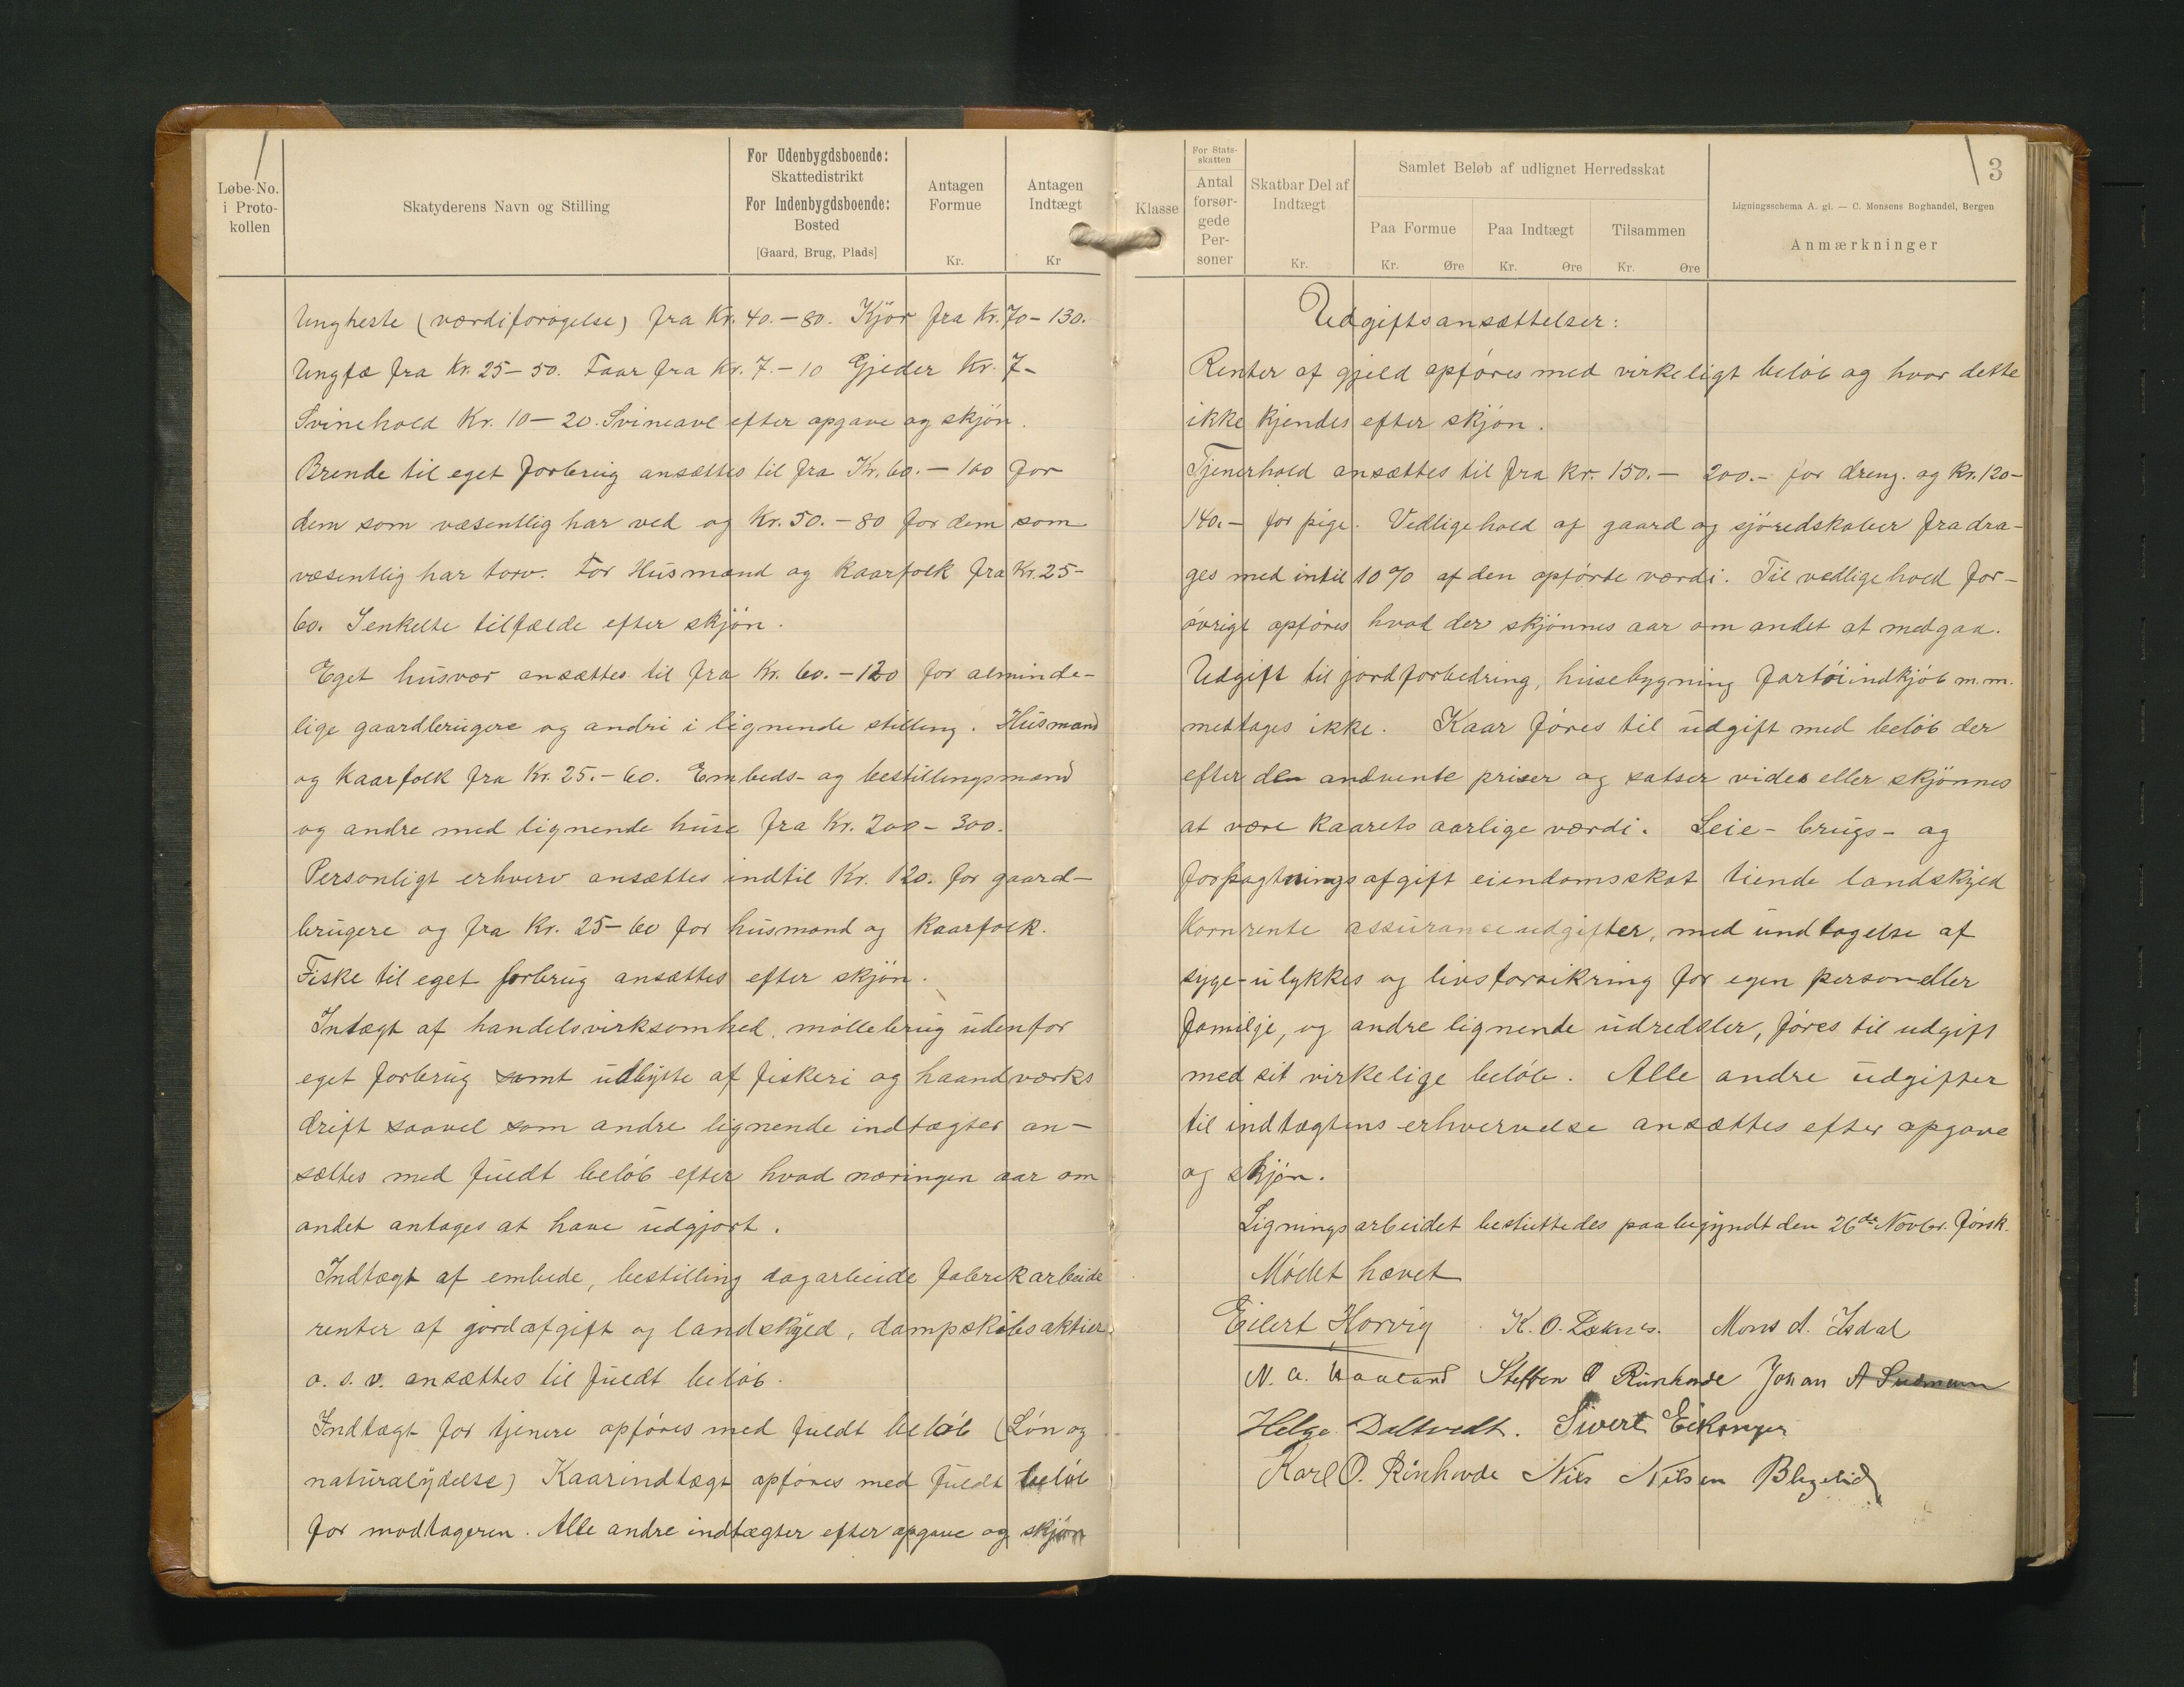 Løbe-No.
i Proto-
kollen
Skatyderens Navn og Stilling
For Udenbygdsboende:
Skattedistrikt
For Indenbygdsboende:
Bosted
[Gaard, Brug, Plads]
Antagen
Formue
Kr.
Antagen
Indtægt
Kr
Ungheste (værdiforøgelse) fra Kr. 40.-80. Kjör fra Kr. 70-130.
Ungfæ fra Kr. 25-50. Faar fra Kr. 7.-10 Gjeder Kr. 7-
Svinehold Kr. 10-20. Svineavl efter opgave og skjön.
Brende til eget forbrug ansættes til fra Kr. 60.-100 for
dem som væsentlig har ved og Kr. 50.-80 for dem som
væsentlig har torv. For Husmænd og kaarfolk fra Kr. 25-
60. I enkelte tilfælde efter skjön.
Eget husvær ansættes til fra Kr. 60.-120 for alminde-
lige gaardbrugere og andre i lignende stilling. Husmænd
og kaarfolk fra Kr. 25.-60. Embeds- og bestillingsmænd
og andre med lignende huse fra Kr. 200-300.
Personligt erhverv ansættes indtil Kr. 120. for gaard-
brugere og fra Kr. 25-60 for husmænd og kaarfolk.
Fiske til eget forbrug ansættes efter skjön.
Intægt af handelsvirksomhed, möllebrug udenfor
eget forbrug samt udbytte af fiskeri og haandværks
drift saavel som andre lignende indtægter an-
sættes med fuldt belöb efter hvad næringen aar om
andet antages at have udgjort.
Indtægt af embede, bestilling dagarbeide fabrikarbeide
renter af jordafgift og landskyld, dampskibsaktier
o. s. v. ansættes til fuldt belöb.
Indtægt for tjenere opföres med fuldt belöb (Lön og
naturalydelse) Kaarindtægt opföres med fuldt belöb
for modtageren. Alle andre indtægter efter opgave og skjön
Klasse
For Stats-
skatten
Antal
forsør-
gede
Per-
soner
Skatbar Del af
Indtægt
Kr.
Samlet Beløb af udlignet Herredsskat
Paa Formue
Kr. Øre
Paa Indtægt
Kr. Øre
Tilsammen
Kr. Øre
3
Ligningsschema A. gl. — C. Monsens Boghandel, Bergen
Anmærkninger
Udgiftsansættelser:
Renter af gjeld opföres med virkeligt belöb og hvor dette
ikke kjendes efter skjön.
Tjenerhold ansættes til fra Kr. 150.- 200.- for dreng. og Kr. 120-
140.- for pige. Vedligehold af gaard og sjöredskaber fradra-
ges med intil 10% af den opförte værdi. Til vedligehold for-
övrigt opföres hvad der skjönnes aar om andet at medgaa.
Udgift til jordforbedring, husebygning fartöiindkjöb m.m.
mettages ikke. Kaar föres til udgift med belöb der
efter den andvente priser og satser vides eller skjönnes
at være kaarets aarlige værdi. Leie- brugs- og
forpagtningsafgift eiendomsskat tiende landskyld
kornrente assuranseudgifter, med undtagelse af
syge-ulykkes og livsforsikring for egen person eller
familje, og andre lignende udredsler, föres til udgift
med sit virkelige belöb. Alle andre udgifter
til indtægtens erhvervelse ansættes efter opgave
og skjön.
Ligningsarbeidet besluttedes paabegyndt den 26de Novbr. förstk.
Mödet hævet
Eilert Horvig K. O. Mons A. Isdal
N. A. Steffen O Rinhovde Johan A
Helge Daltvedt. Sivert
Karl O. Rinhovde Nils Nilsen